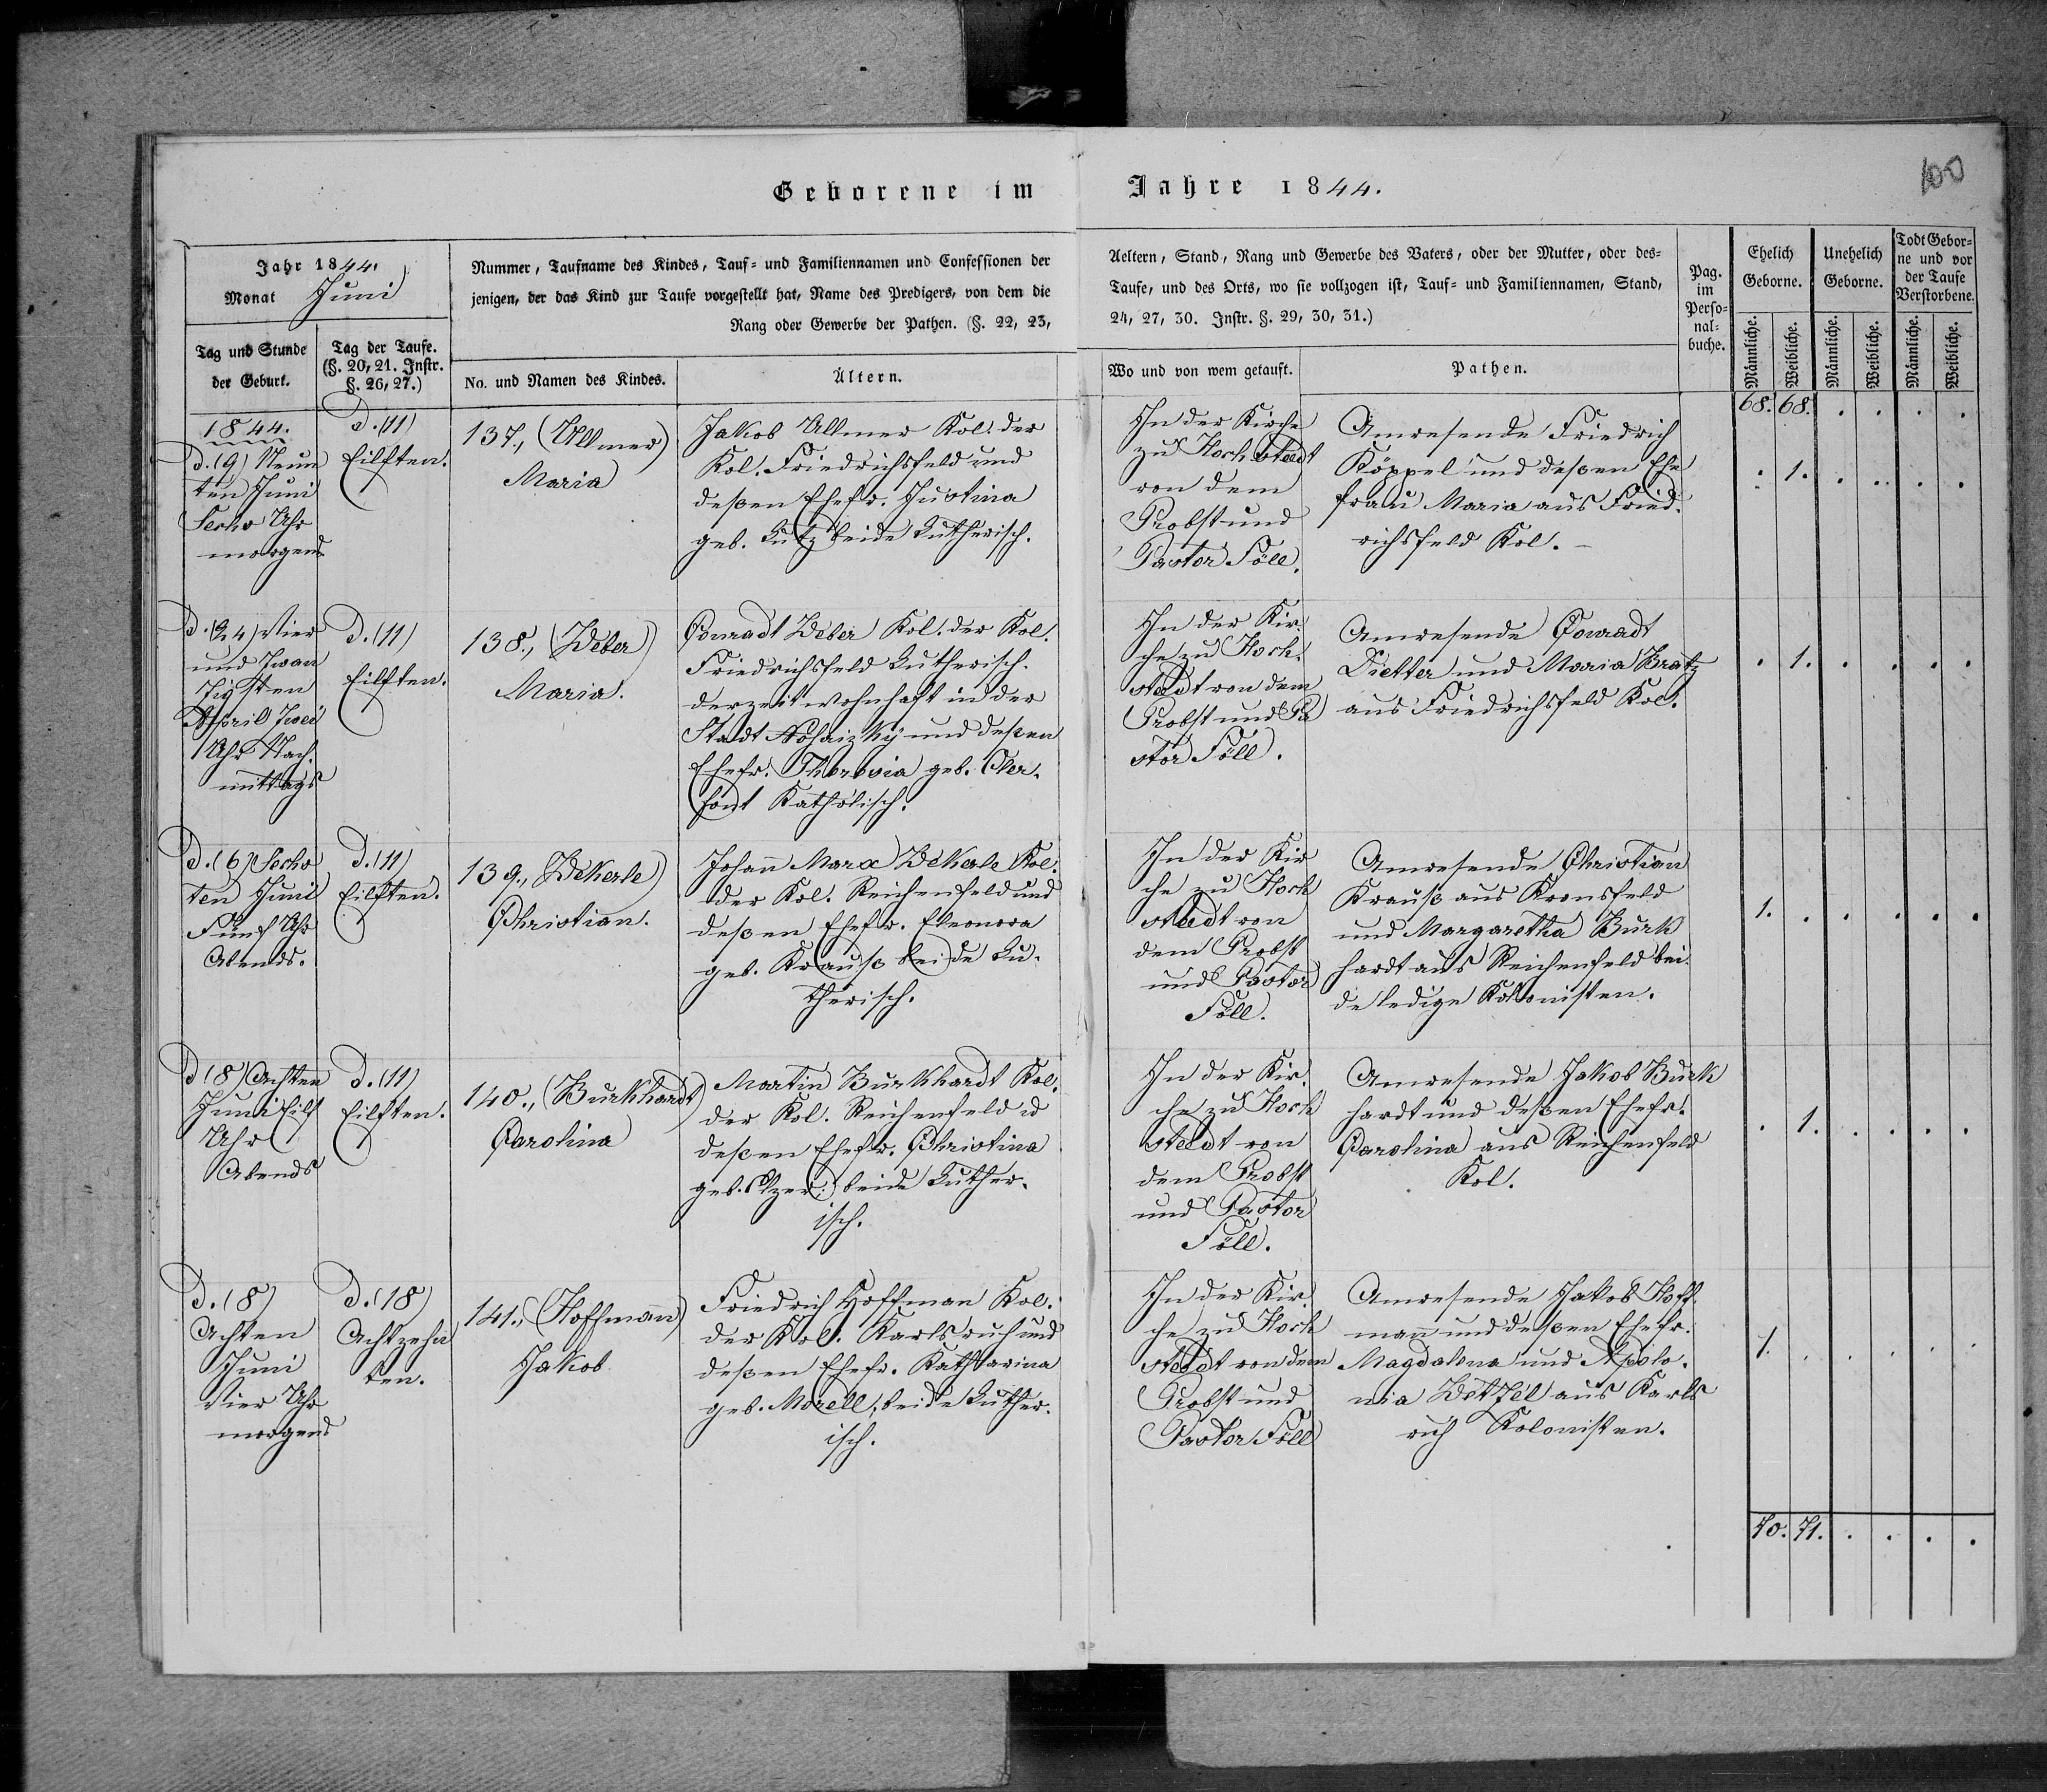 Geborene im Jahre 1844.
100
Jahr 1844.
Monat Juni
Nummer, Taufname des Kindes, Tauf- und Familiennamen und Confessionen der
jenigen, der das Kind zur Taufe vorgestellt hat, Name des Predigers, von dem die
Rang oder Gewerbe der Pathen. (§. 22, 23,
Aeltern, Stand, Rang und Gewerbe des Vaters, oder der Mutter, oder des-
Taufe, und des Orts, wo sie vollzogen ist, Tauf- und Familiennamen, Stand,
24, 27, 30. Instr. §. 29, 30, 31.)
Pag.
im
Perso-
nal-
buche.
Ehelich
Geborne.
Unehelich
Geborne.
Todt Gebor-
ne und vor
der Taufe
Verstorbene.
Tag und Stunde
der Geburt.
Tag der Taufe.
(§. 20, 21. Instr.
§. 26, 27.)
No. und Namen des Kindes.
Ältern.
Wo und von wem getauft.
Pathen.
Männliche.
Weibliche.
Männliche.
Weibliche.
Männliche.
Weibliche.
68. 68. . . . .
1844.
D. (9) Neun
ten Juni
Sechs Uhr
morgens
D. (11)
Eilften.
137., (Ullmer)
Maria
Jakob Ullmer Kol. der
Kol. Friedrichsfeld und
deßen Ehefr. Justina
geb. Lutz beide Lutherisch.
In der Kirche
zu Hochstedt
von dem
Probst und
Pastor Föll.
Anwesende Friedrich
Köppel und deßen Ehe
frau Maria aus Fried-
richsfeld Kol. –
. 1. . . . .
D. (24) Vier
und Zwan
zigsten
April Zwei
Uhr Nach-
mittags
D. (11)
Eilften.
138., (Weber)
Maria.
Conradt Weber Kol. der Kol.
Friedrichsfeld Lutherisch.
derzeit wohnhaft in der
Stadt Nohaizky und deßen
Ehefr. Theresia geb.
Katholisch.
In der Kir-
che zu Hoch-
stedt von dem
Probst und Pa
stor Föll.
Anwesende Conradt
Dietter und Maria Bratz
aus Friedrichsfeld Kol.
. 1. . . . .
D. (6) Sechs
ten Juni
Fünf Uhr
Abends.
D. (11)
Eilften.
139., (Wekerle)
Christian.
Johann Marx Wekerle Kol.
der Kol. Reichenfeld und
deßen Ehefr. Eleonora
geb. Krauß beide Lu-
therisch.
In der Kir
che zu Hoch
stedt von
dem Probst
und Pastor
Föll.
Anwesende Christian
Krauß aus Kronsfeld
und Margaretha Burk
hardt aus Reichenfeld bei-
de ledige Kolonisten.
1. . . . . .
D (8) Achten
Juni Eilf
Uhr
Abends
D. (11)
Eilften.
140., (Burkhardt)
Carolina
Martin Burkhardt Kol.
der Kol. Reichenfeld u
deßen Ehefr. Christina
geb. beide Luther-
isch.
In der Kir-
che zu Hoch
stedt von
dem Probst
und Pastor
Föll.
Anwesende Jakob Burk
hardt und deßen Ehefr.
Carolina aus Reichenfeld
Kol.
. 1. . . . .
D. (8)
Achten
Juni
Vier Uhr
morgens
D. (18)
Achtzehn
ten.
141., (Hoffmann)
Jakob
Friedrich Hoffman Kol.
der Kol. Karlsruh und
deßen Ehefr. Katharina
geb. Morell, beide Luther-
isch.
In der Kir-
che zu Hoch
stedt von dem
Probst und
Pastor Föll
Anwesende Jakob Hoff-
mann und deßen Ehefr.
Magdalena und Apolo-
nia Wetzel aus Karls
ruh Kolonisten.
1. . . . . .
70. 71. . . . .